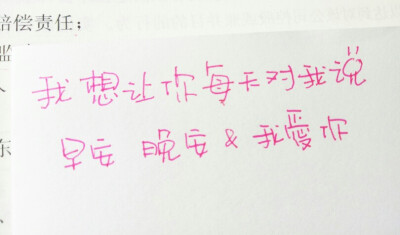 赔偿责任；
我想让你每天对我说
东
早安 晚安 & 我爱你
、